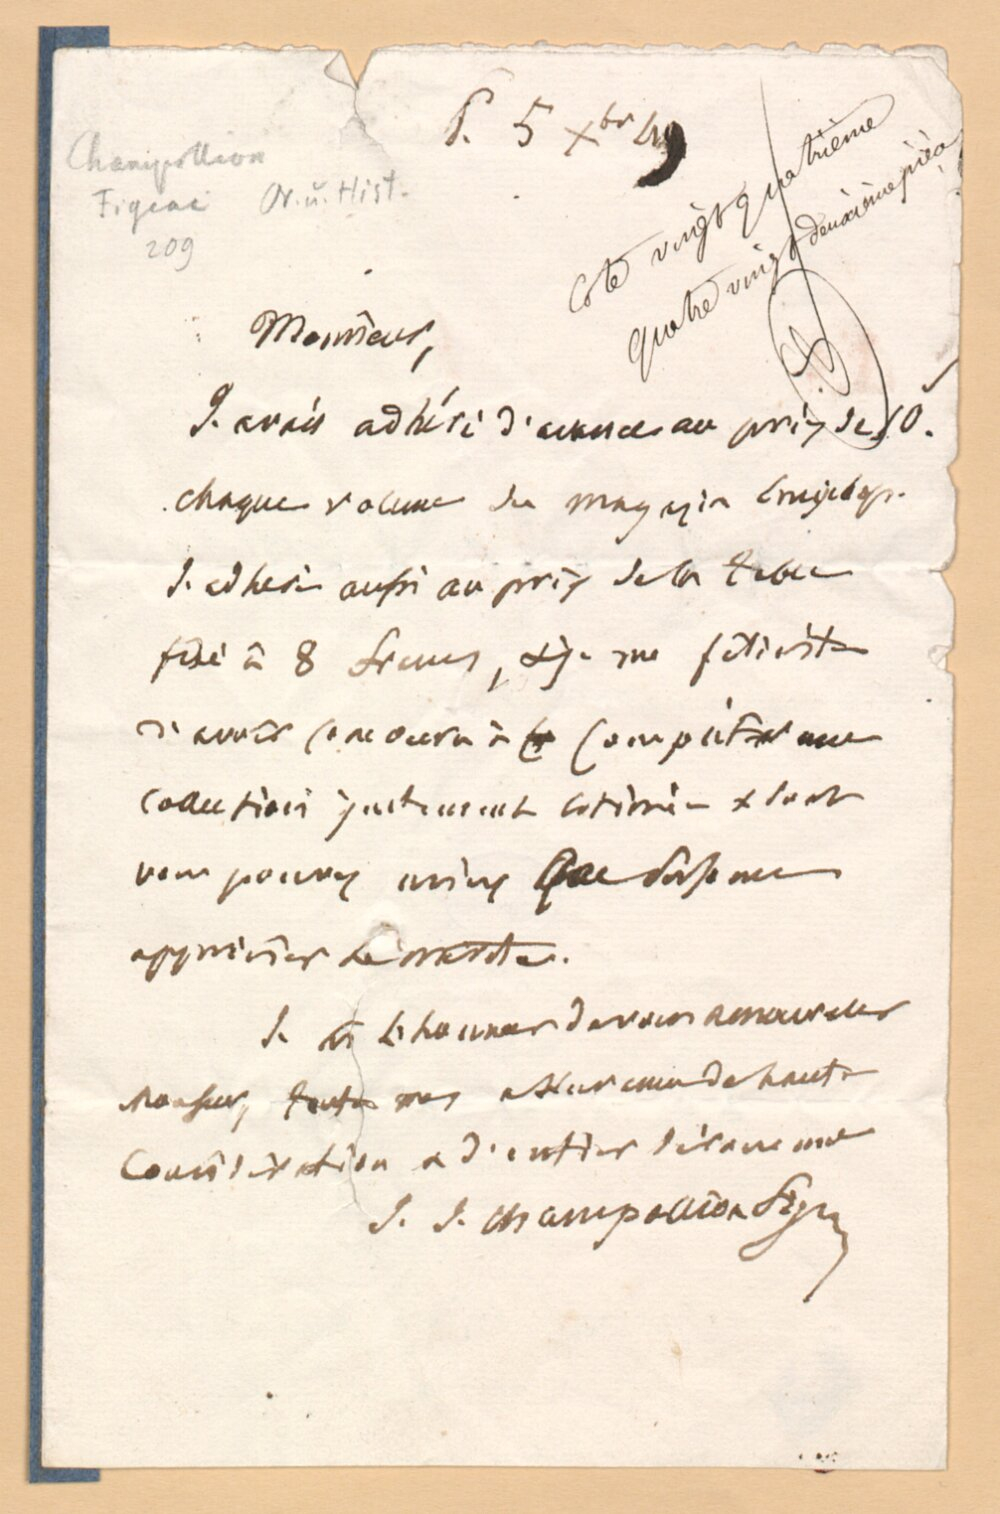 P. 5 Xbre 49
Champollion
Figeac Or. u. Hist.
209
Cote vingt quatrième
quatre vingt deuxième pièce
Monsieur,
J'avais adhéré d'avance au prix de 10.
chaque volume du magazin Encyclop.
J'adhère aussi au prix de la table
fixé à 8 francs, & je me félicite
d'avoir concouru à compléter une
collection justement estimée & dont
vous pouvez mieux que personne
apprécier le mérite.
J'ai l'honneur de vous renouveler
Monsieur, toutes mes assurances de haute
Considération & d'entier dévouement
J. J. Champollion Figeac